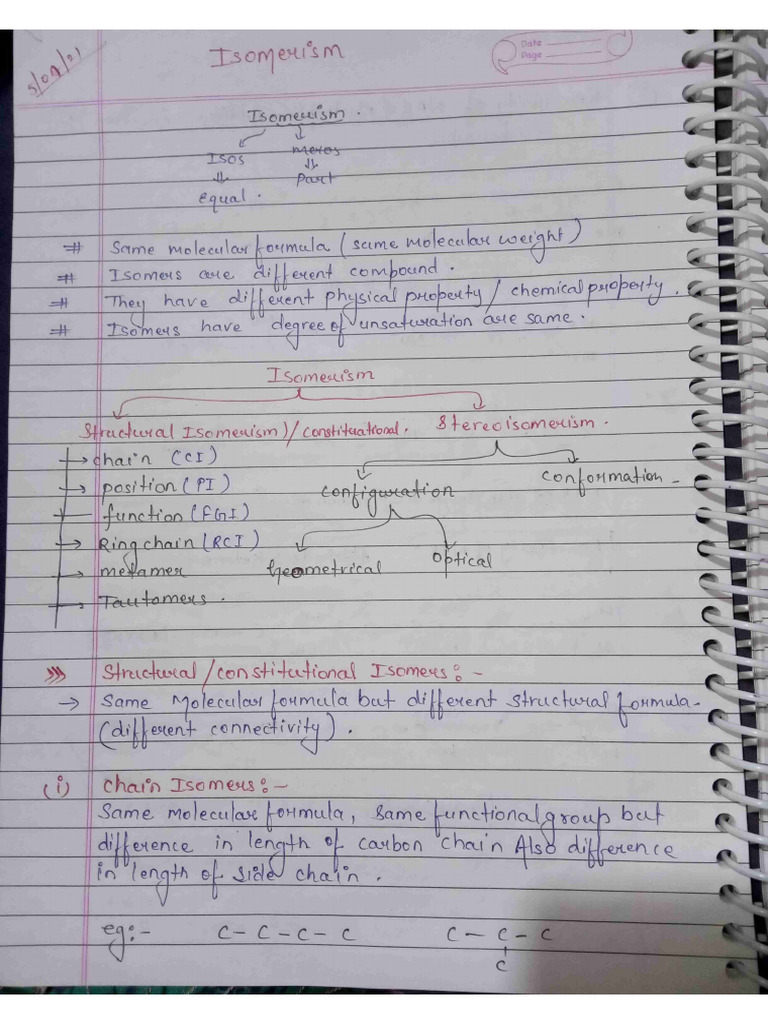 Isomerism
Date
Page
5/09/21
Isomerism.
Isos Meros
⇓ ⇓
equal. Part
# Same molecular formula (same molecular weight)
# Isomers are different compound.
# They have different physical property / chemical property.
# Isomers have degree of unsaturation are same.
Isomerism
Structural Isomerism)/constituational. Stereoisomerism.
→ chain (CI)
→ position (PI)
configuration conformation -
function (FGI)
→ Ring chain (RCI)
→ metamer Geometrical optical
→ Tautomers.
>>> Structural / constitutional Isomers:-
→ Same Molecular formula but different structural formula-
(different connectivity).
(i) Chain Isomers:-
Same molecular formula, same functional group but
difference in length of carbon chain Also difference
in length of side chain.
eg:- C-C-C-C C-C-C
C